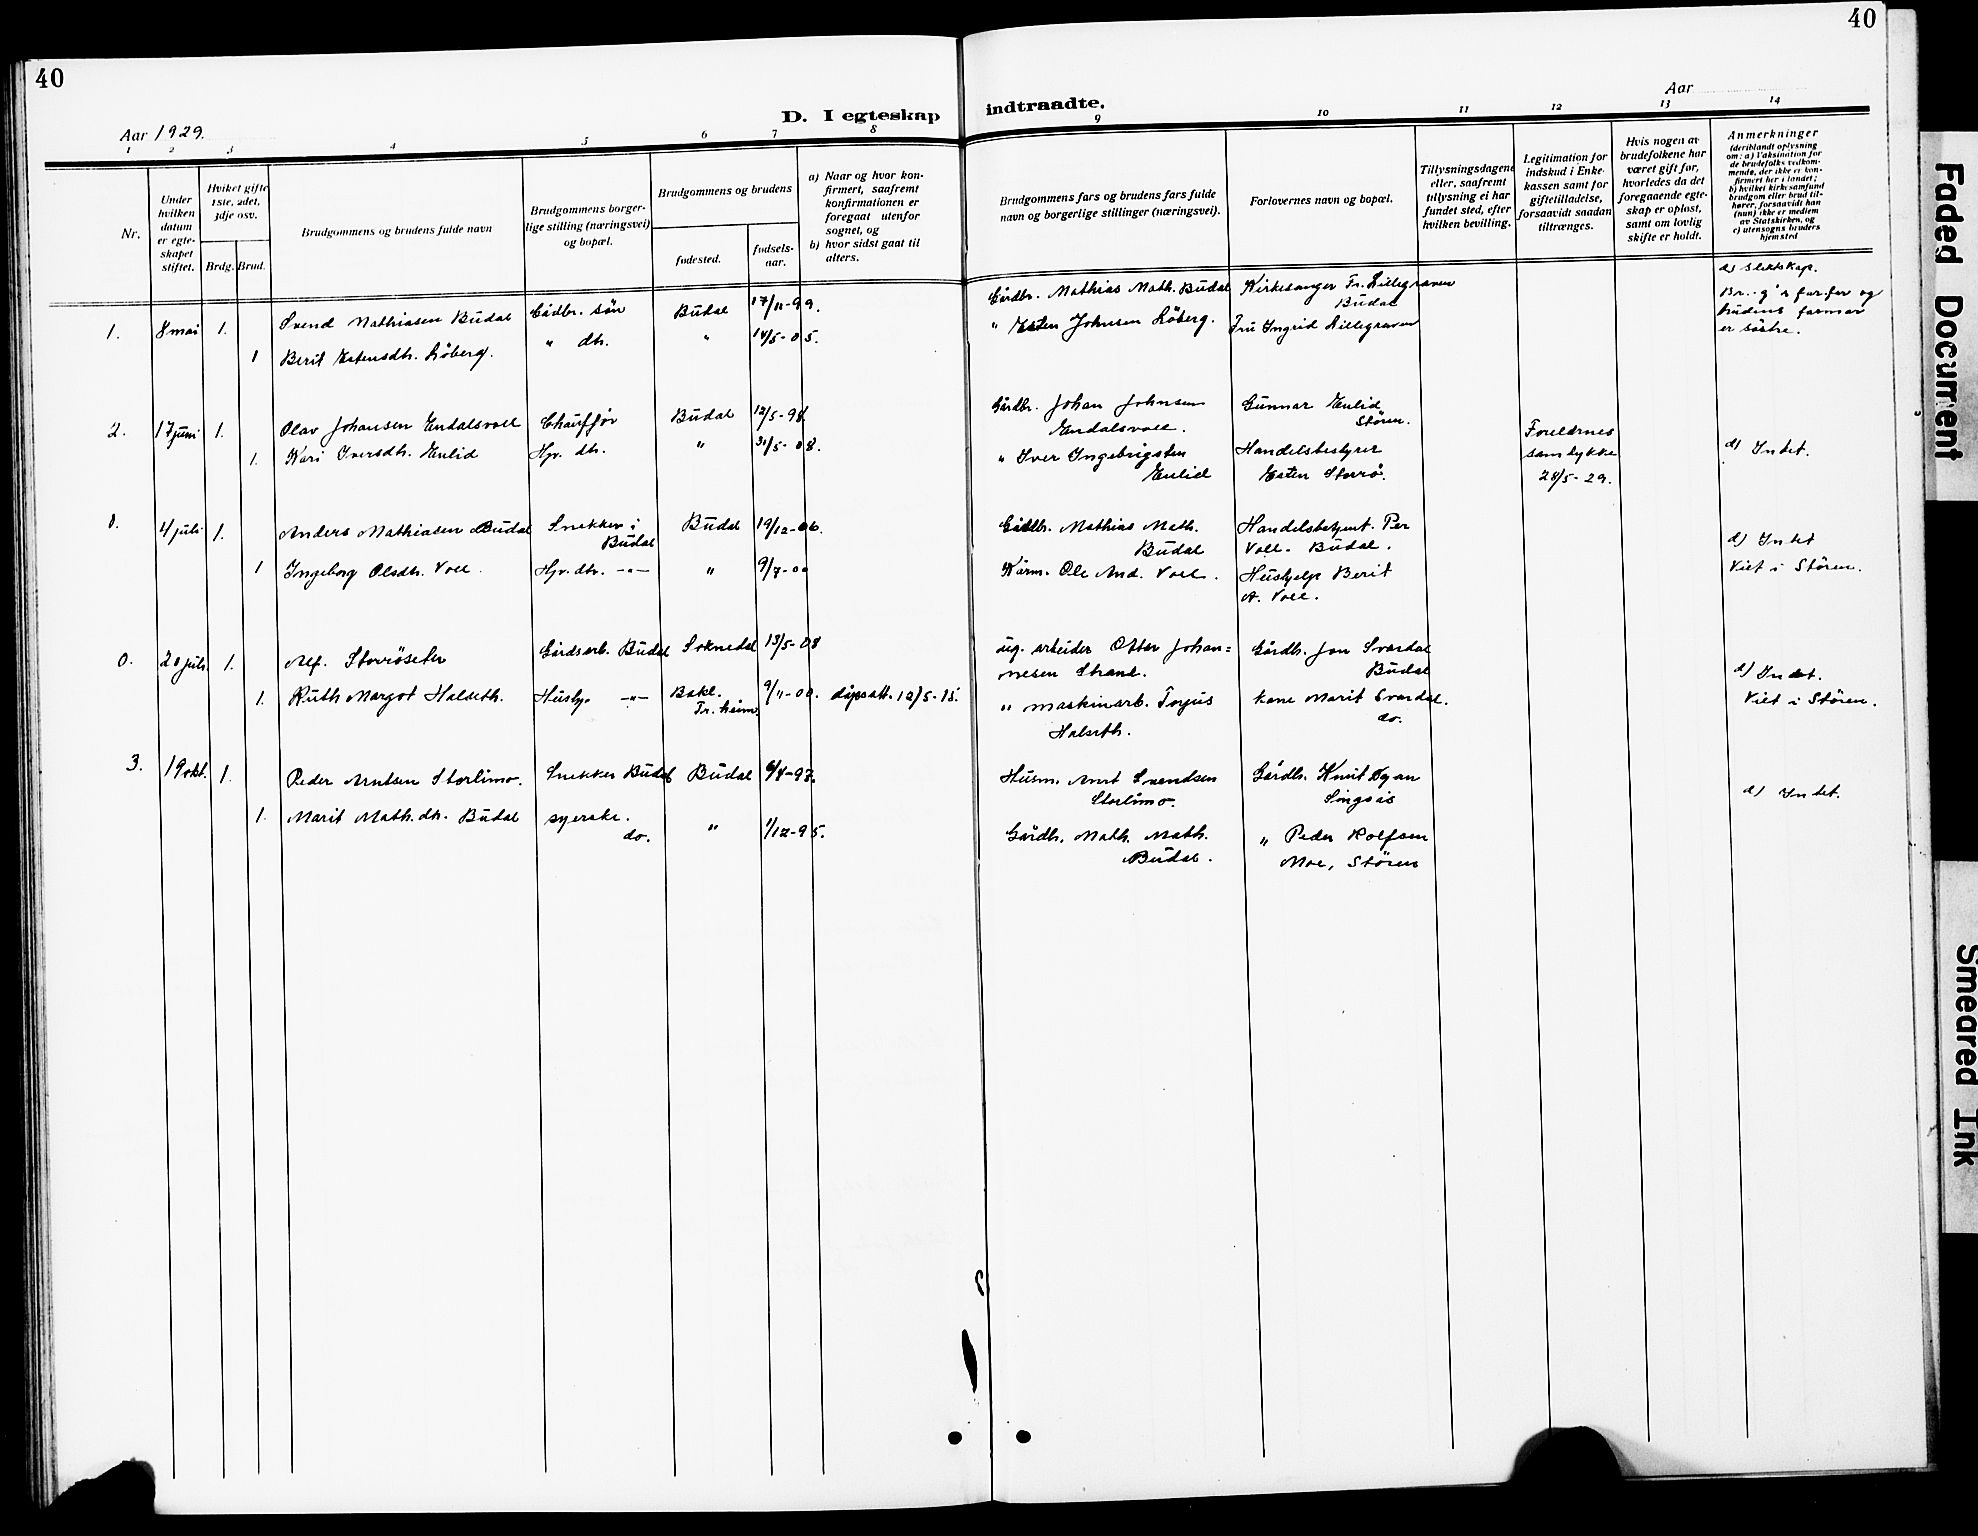 40
40
Aar 1929.
D. I egteskap
indtraadte.
Aar
1 2 3 4 5 6 7 8
9 10 11 12 13 14
Nr.
Under hvilken datum er egteskapet stiftet.
Hviket gifte 1ste, 2det, 3dje osv.
Brdg. Brud.
Brudgommens og brudens fulde navn
Brudgommens borgerlige stilling (næringsvei) og bopæl.
Brudgommens og brudens
fødested.
fødselsaar.
a) Naar og hvor konfirmert, saafremt konfirmationen er foregaat utenfor sognet, og
b) hvor sidst gaat til alters.
Brudgommens fars og brudens fars fulde navn og borgerlige stillinger (næringsvei).
Forlovernes navn og bopæl.
Tillysningsdagene eller, saafremt tillysning ei har fundet sted, efter hvilken bevilling.
Legitimation for indskud i Enkekassen samt for giftetilladelse, forsaavidt saadan tiltrænges.
Hvis nogen av brudefolkene har været gift før, hvorledes da det foregaaende egteskap er opløst, samt om lovlig skifte er holdt.
Anmerkninger
(deriblandt oplysning om: a) Vaksination for de brudefolks vedkommende, der ikke er konfirmert her i landet;
b) hvilket kirkesamfund brudgom eller brud tilhører, forsaavidt han (hun) ikke er medlem av Statskirken, og
c) utensogns bruders hjemsted
1. 8 mai 1. Svend Mathiasen Budal Gådbr. søn Budal 17/11-99. Gårdbr. Mathias Math. Budal Kirkesanger Fr. Lillegraven Budal d) Slektskap.
1 Berit Estensdtr. Løberg. " dtr. " 14/5-05. " Esten Johnsen Løberg. Fru Ingrid Lillegraven Br.g's farfar og brudens farmor er søstre.
2. 17 juni 1. Olav Johansen Endalsvoll Chauffør Budal 12/5-98. Gårdbr. Johan Johnsen Endalsvoll. Gunnar Enlid Støren.
1. Kari Iversdtr. Enlid Hjv. dtr. " 31/5-08. " Iver Ingebrigsten Enlid Handelsbestyrer Esten Storrø. Foreldrenes samtykke 28/5-29. d) Intet.
1. 4 juli 1. Anders Mathiasen Budal Snekker i Budal Budal 19/12-06. Gårdbr. Mathias Math. Budal Handelsbetjent. Per Voll. Budal. d) Intet
1 Ingeborg Olsdtr. Voll. Hjv. dtr. -"- " 9/7-00 Kårm. Ole And. Voll. Hushjelp Berit A. Voll. Viet i Støren.
0. 20 juli 1. Alf. Storrøseter Gårdsarb. Budal Soknedal 13/5-08 ug. arbeider Otter Johannesen Strand. Gårdbr. Jon Svardal Budal d) Intet.
1. Ruth Margot Halseth. Hushj. -"- Bakl. Tr.heim. 9/11-00. dåpsatt. 12/5-15. " maskinarb. Torjus Halseth. kone Marit Svardal. do. Viet i Støren.
3. 19 okt. 1. Peder Arntsen Storlimo. Snekker Budal Budal 6/4-97. Husm. Arnt Svendsen Storlimo. Gårdbr. Knut Dyan Singsås d) Intet.
1. Marit Math.dtr. Budal syerske. do. " 1/12-95. Gårdbr. Math. Math. Budal. " Peder Rolfsen Moe, Støren
Faded Document
Smeared Ink